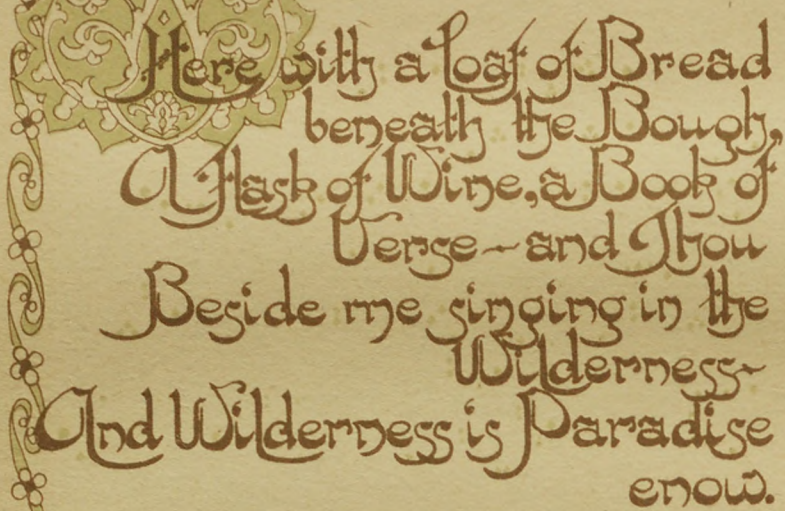 Here with a Loaf of Bread
beneath the Bough,
A Flask of Wine, a Book of
Verse—and Thou
Beside me singing in the
Wilderness—
And Wilderness is Paradise
enow.